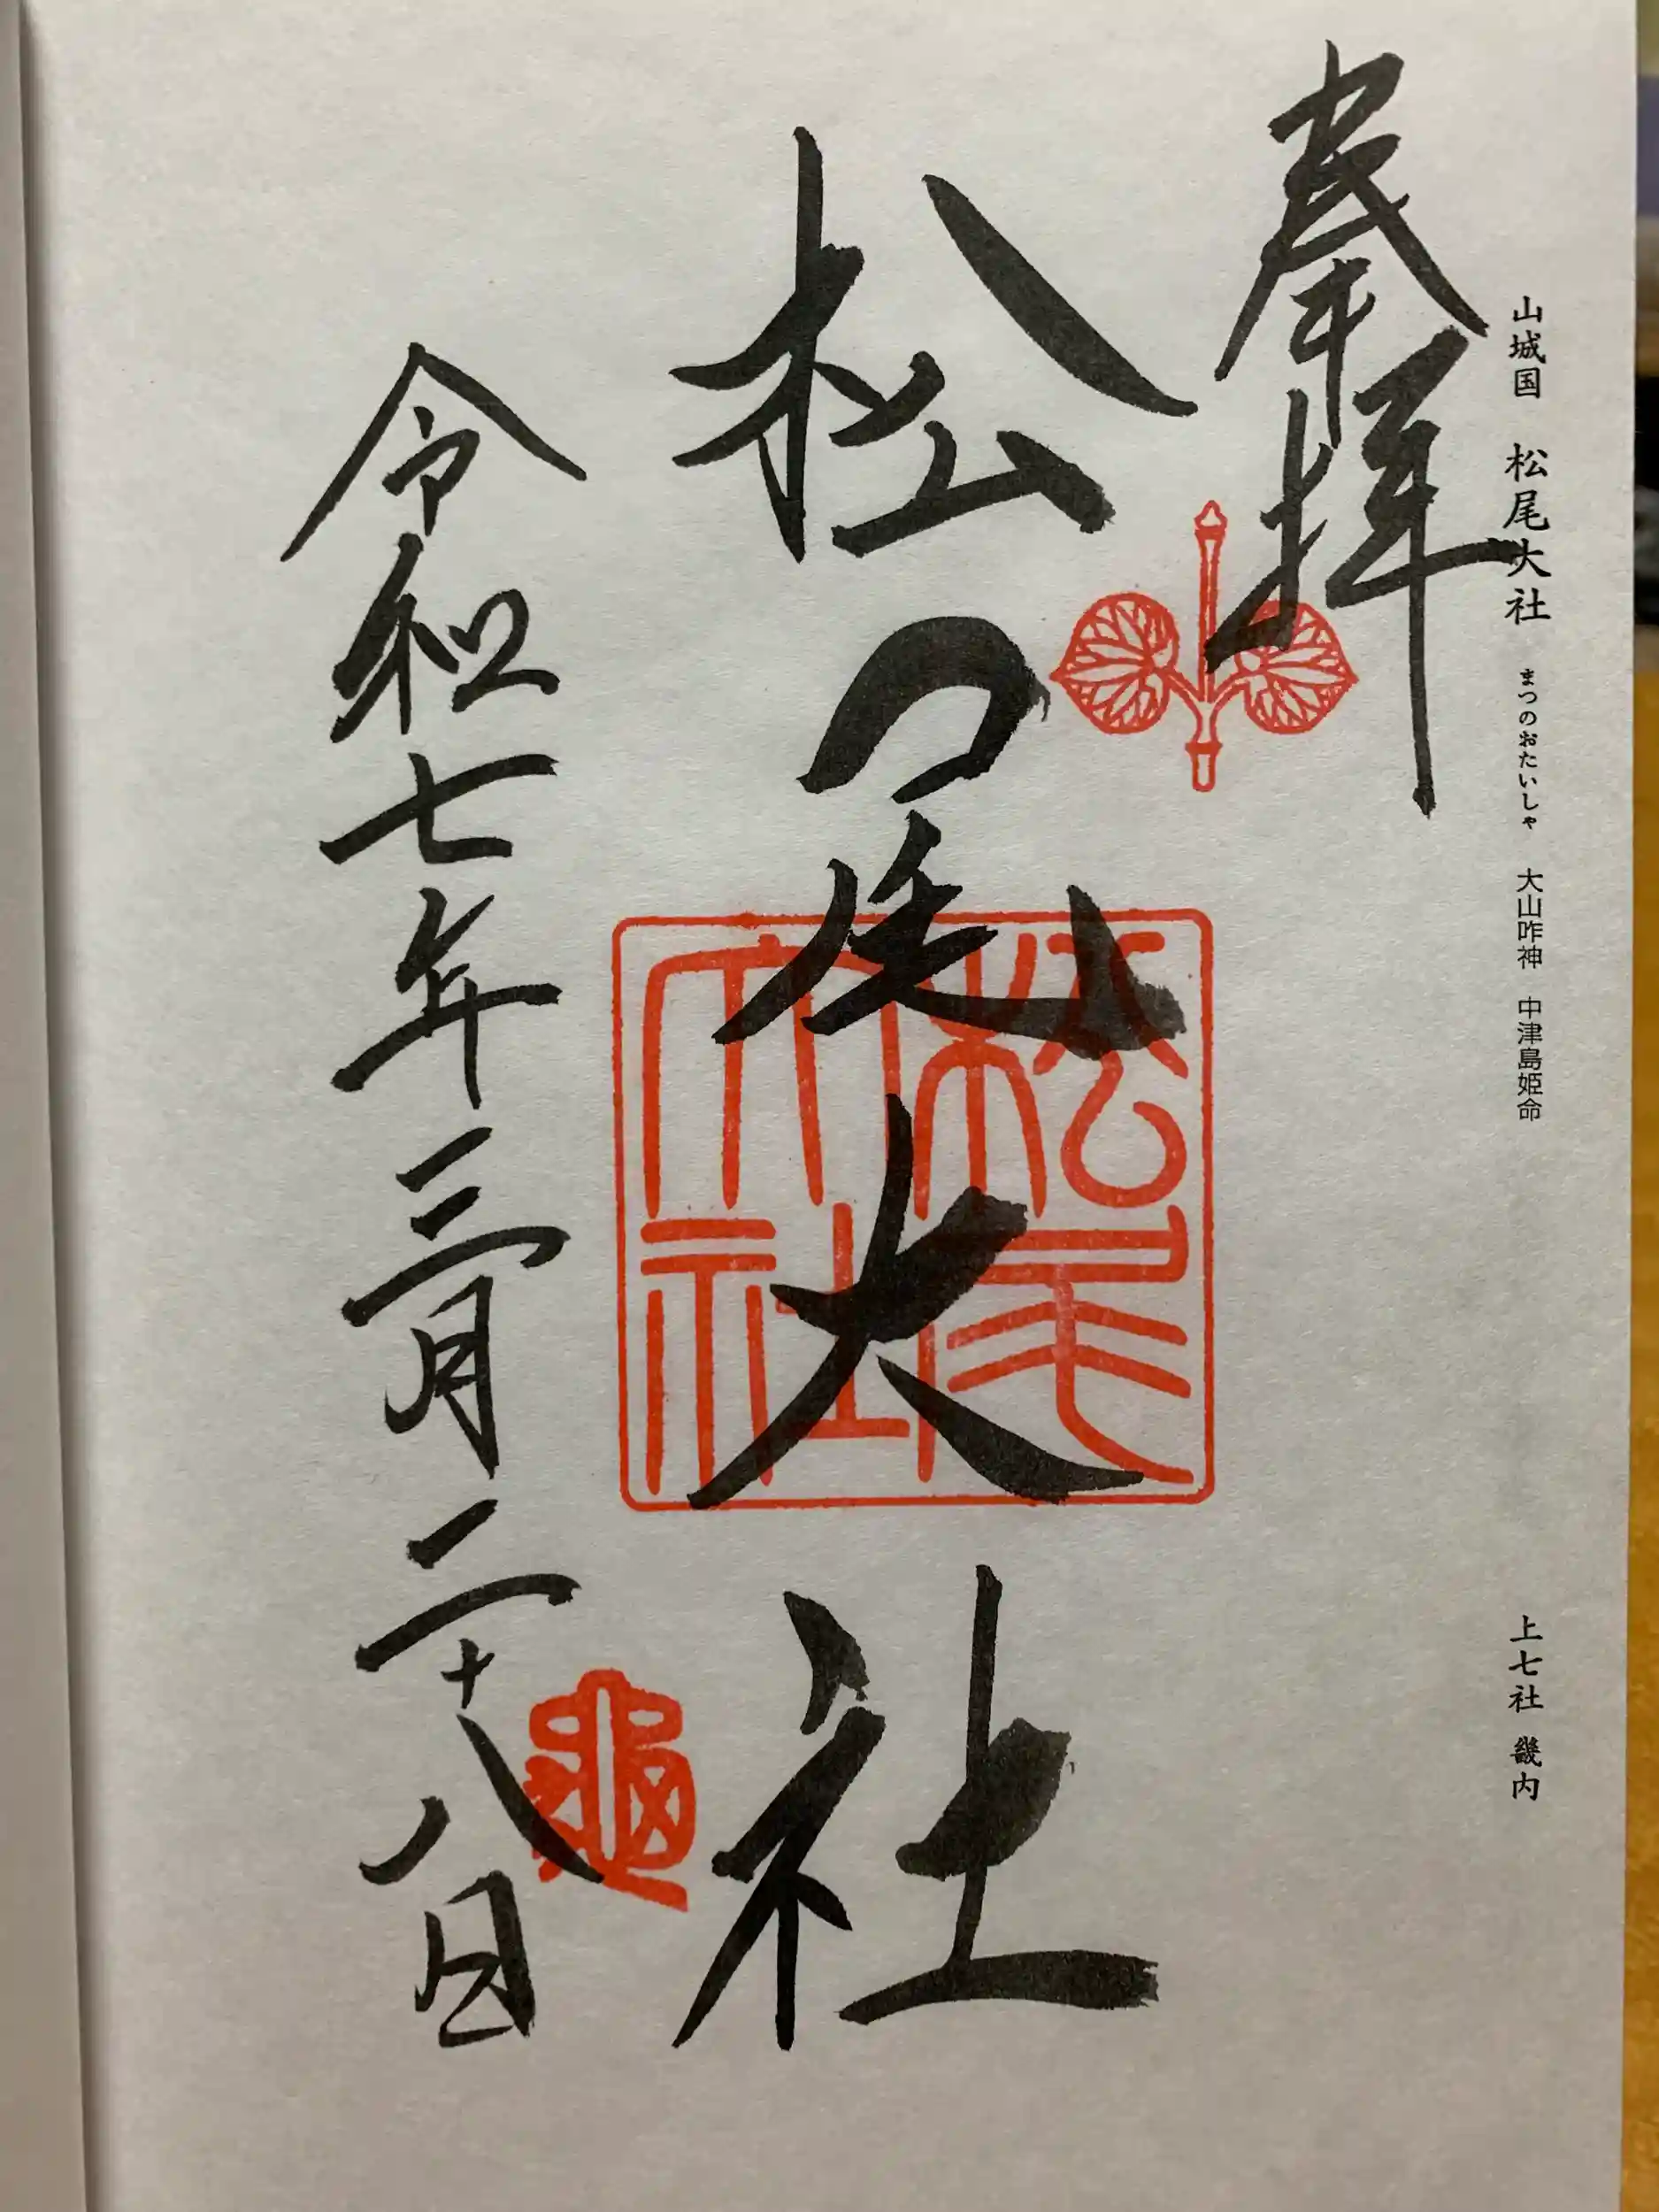 山城国 松尾大社 まつのおたいしゃ 大山咋神 中津島姫命 上七社 畿内
奉拝
松の尾大社
松尾
大社
令和七年三月二十八日
龜